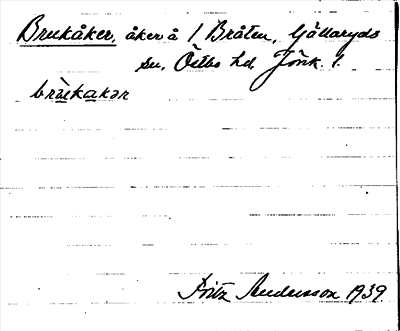 Brukåker, åker å 1 Bråten, Gällaryds
sn, Östbo hd. Jönk. l.
brùkakər
Fritz Andersson 1939